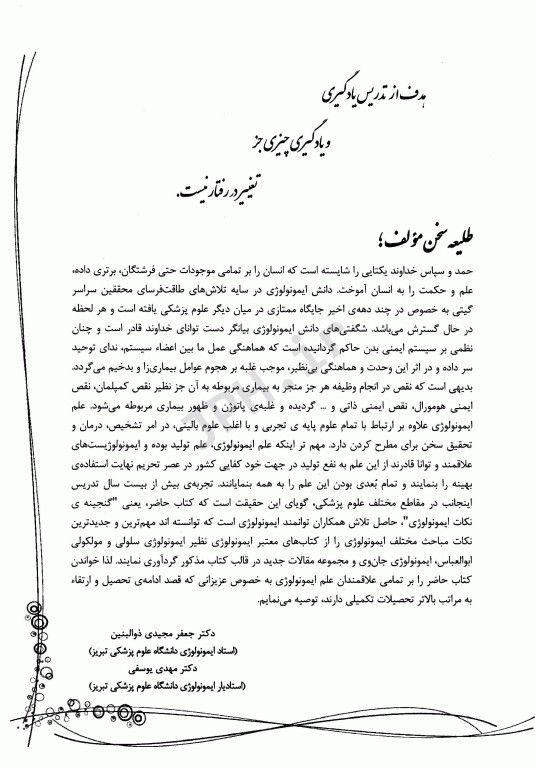 هدف از تدریس یادگیری
و یادگیری چیزی جز
تغییر در رفتار نیست.
طلیعه سخن مؤلف؛
حمد و سپاس خداوند یکتایی را شایسته است که انسان را بر تمامی موجودات حتی فرشتگان، برتری داده،
علم و حکمت را به انسان آموخت. دانش ایمونولوژی در سایه تلاش‌های طاقت‌فرسای محققین سراسر
گیتی به خصوص در چند دهه‌ی اخیر جایگاه ممتازی در میان دیگر علوم پزشکی یافته است و هر لحظه
در حال گسترش می‌باشد. شگفتی‌های دانش ایمونولوژی بیانگر دست توانای خداوند قادر است و چنان
نظمی بر سیستم ایمنی بدن حاکم گردانیده است که هماهنگی عمل ما بین اعضاء سیستم، ندای توحید
سر داده و در اثر این وحدت و هماهنگی بی‌نظیر، موجب غلبه بر هجوم عوامل بیماری‌زا و بدخیم می‌گردد.
بدیهی است که نقص در انجام وظیفه هر جز منجر به بیماری مربوطه به آن جز نظیر نقص کمپلمان، نقص
ایمنی هومورال، نقص ایمنی ذاتی و ... گردیده و غلبه‌ی پاتوژن و ظهور بیماری مربوطه می‌شود. علم
ایمونولوژی علاوه بر ارتباط با تمام علوم پایه ی تجربی و با اغلب علوم بالینی، در امر تشخیص، درمان و
تحقیق سخن برای مطرح کردن دارد. مهم تر اینکه علم ایمونولوژی، علم تولید بوده و ایمونولوژیست‌های
علاقمند و توانا قادرند از این علم به نفع تولید در جهت خود کفایی کشور در عصر تحریم نهایت استفاده‌ی
بهینه را بنمایند و تمام بُعدی بودن این علم را به همه بنمایانند. تجربه‌ی بیش از بیست سال تدریس
اینجانب در مقاطع مختلف علوم پزشکی، گویای این حقیقت است که کتاب حاضر، یعنی "گنجینه ی
نکات ایمونولوژی"، حاصل تلاش همکاران توانمند ایمونولوژی است که توانسته اند مهم‌ترین و جدیدترین
نکات مباحث مختلف ایمونولوژی را از کتاب‌های معتبر ایمونولوژی نظیر ایمونولوژی سلولی و مولکولی
ابوالعباس، ایمونولوژی جان‌وی و مجموعه مقالات جدید در قالب کتاب مذکور گردآوری نمایند. لذا خواندن
کتاب حاضر را بر تمامی علاقمندان علم ایمونولوژی به خصوص عزیزانی که قصد ادامه‌ی تحصیل و ارتقاء
به مراتب بالاتر تحصیلات تکمیلی دارند، توصیه می‌نمایم.
دکتر جعفر مجیدی ذوالبنین
(استاد ایمونولوژی دانشگاه علوم پزشکی تبریز)
دکتر مهدی یوسفی
(استادیار ایمونولوژی دانشگاه علوم پزشکی تبریز)